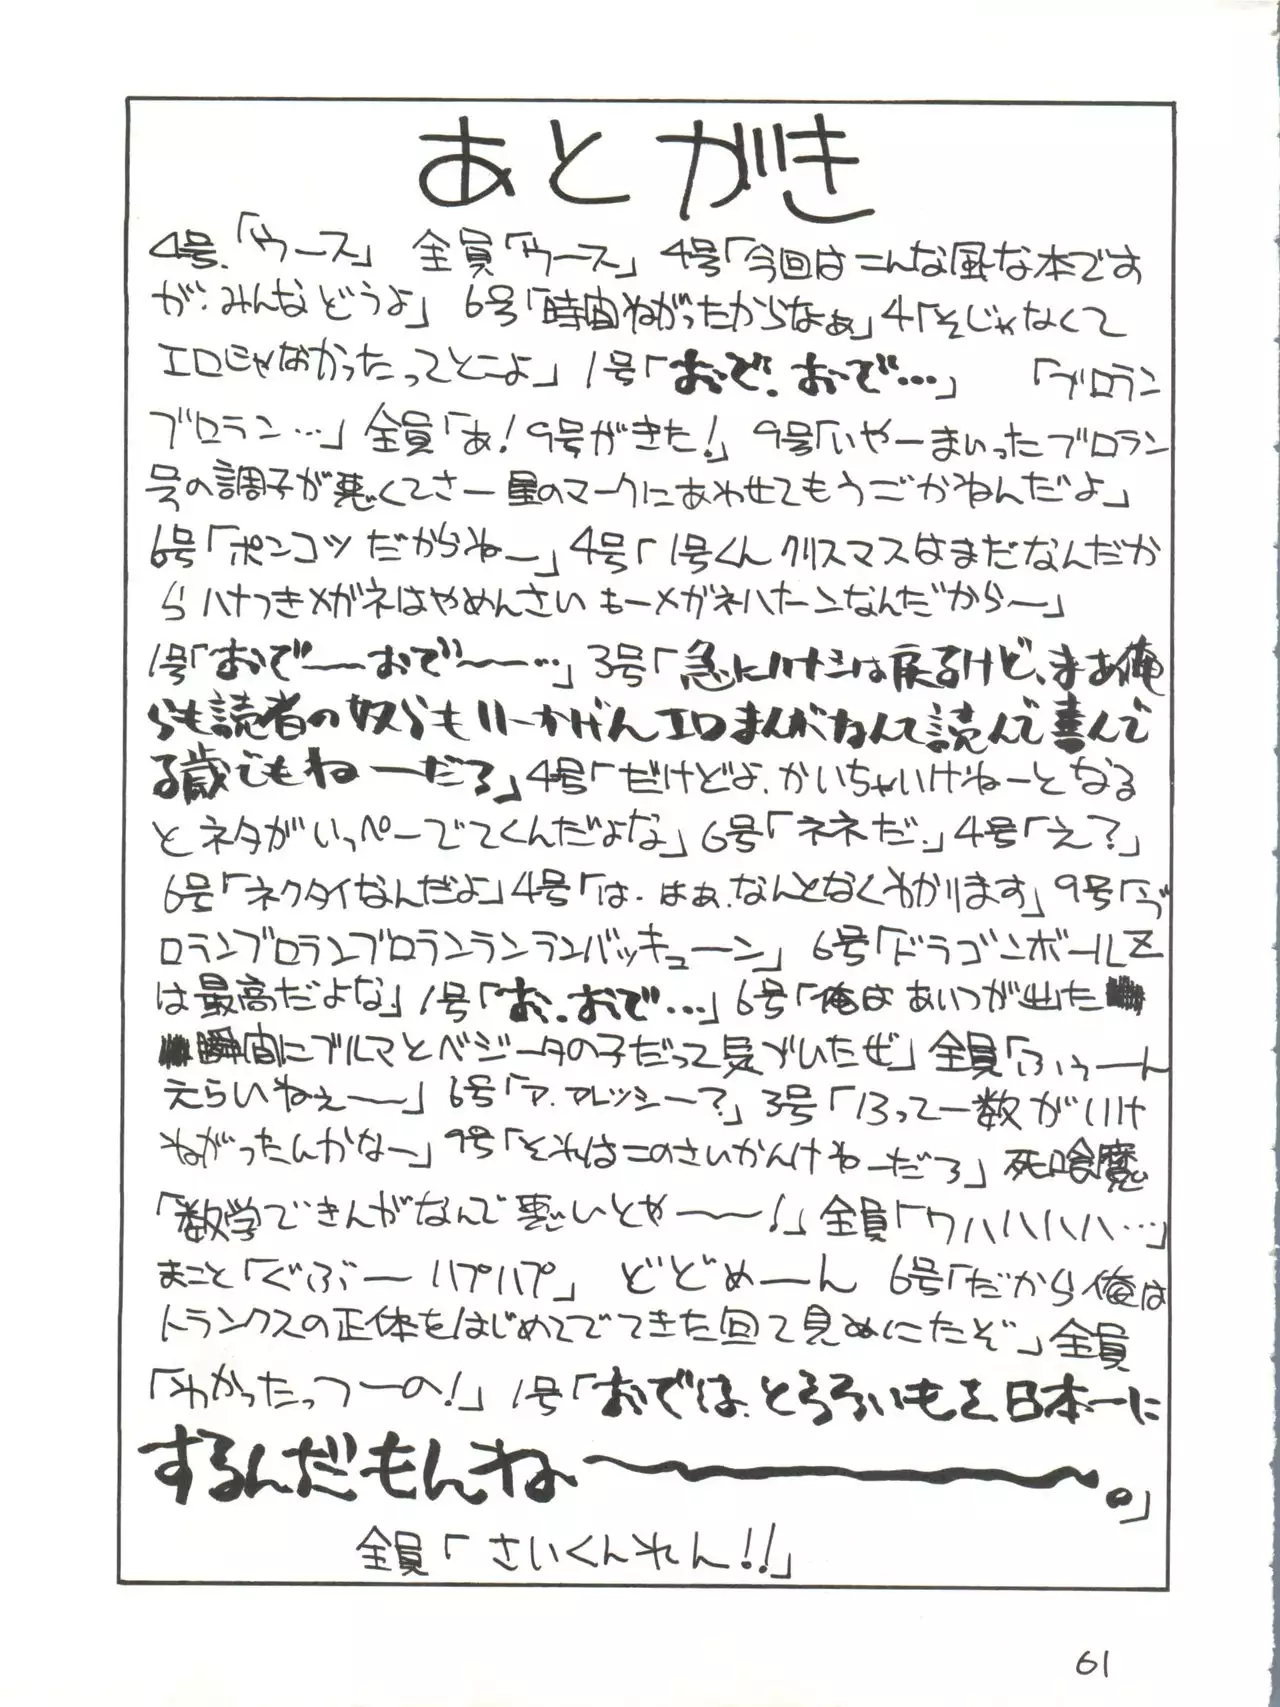 あとがき
4号.「ウース」 全員「ウース」 4号「今回はこんな風な本です
が、みんなどうよ」 6号「時間ねがったからなぁ」4「そじゃなくて
エロじゃなかったってとこよ」1号「おで.おで…」 「ブロラン
ブロラン…」全員「あ!9号がきた!」 9号「いやーまいったブロラン
号の調子が悪くてさー星のマークにあわせてもうごかねんだよ」
6号「ポンコツだからねー」4号「1号くんクリスマスはまだなんだか
らハナつきメガネはやめんさい もーメガネハナーンなんだから〜」
1号「おで〜おで〜…」3号「急にハナシは戻るけど、まあ俺
らも読者の奴らもいーかげんエロまんがなんて読んで喜んで
る歳でもねーだろ」4号「だけどよ.かいちゃいけねーとなる
とネタがいっぺーでてくんだよな」6号「ネネだ.」4号「え?」
6号「ネクタイなんだよ」4号「は.はぁ.なんとなくわかります」9号「ブ
ロランブロランブロランランランバッキューン」 6号「ドラゴンボールZ
は最高だよな」1号「お.おで…」6号「俺はあいつが出た
瞬間にブルマとベジータの子だって気づいたぜ」全員「ふぅーん
えらいねぇ〜」6号「ア.アレッシー?」3号「13って一数がいけ
ねがったんかなー」9号「それはこのさいかんけねーだろ」死喰魔
「数学できんがなんで悪いとや〜!」全員「ワハハハハ…」
まこと「ぐぶーハプハプ」 どどめーん 6号「だから俺は
トランクスの正体をはじめてでてきた回で見ぬにたぞ」全員
「わかったっつーの!」1号「おでは、とろろいもを日本一に
するんだもんね〜。」
全員「さいくんれん!!」
61